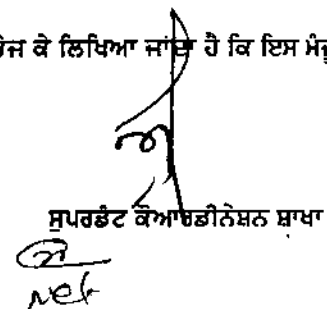 ਭੇਜ ਕੇ ਲਿਖਿਆ ਜਾਂਦਾ ਹੈ ਕਿ ਇਸ ਮੰਜੂ
ਸੁਪਰਡੰਟ ਕੋਆਰਡੀਨੇਸ਼ਨ ਸ਼ਾਖਾ